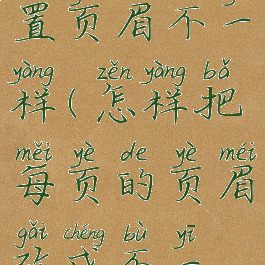 置页眉不一
yàng zěn yàng bǎ
样(怎样把
měi yè de yè méi
每页的页眉
gǎi chéng bù yī
改成不一